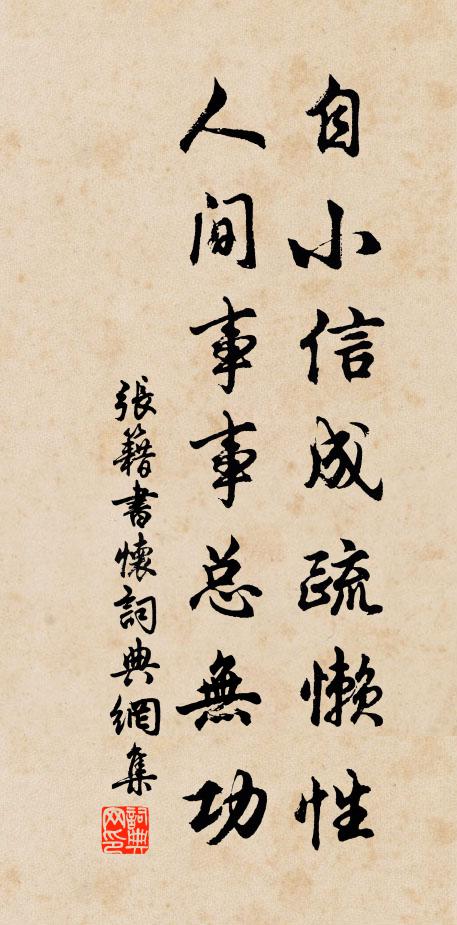 自小信成疏懶性
人间事事总無功
張籍書懷詞典網集
詞典网印